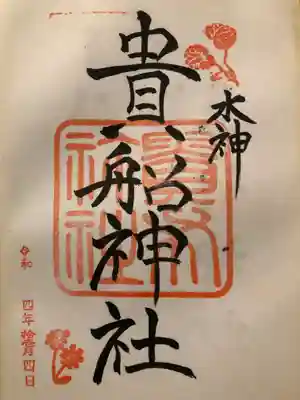 水神
貴船神社
貴船神社
令和 四年 月四日